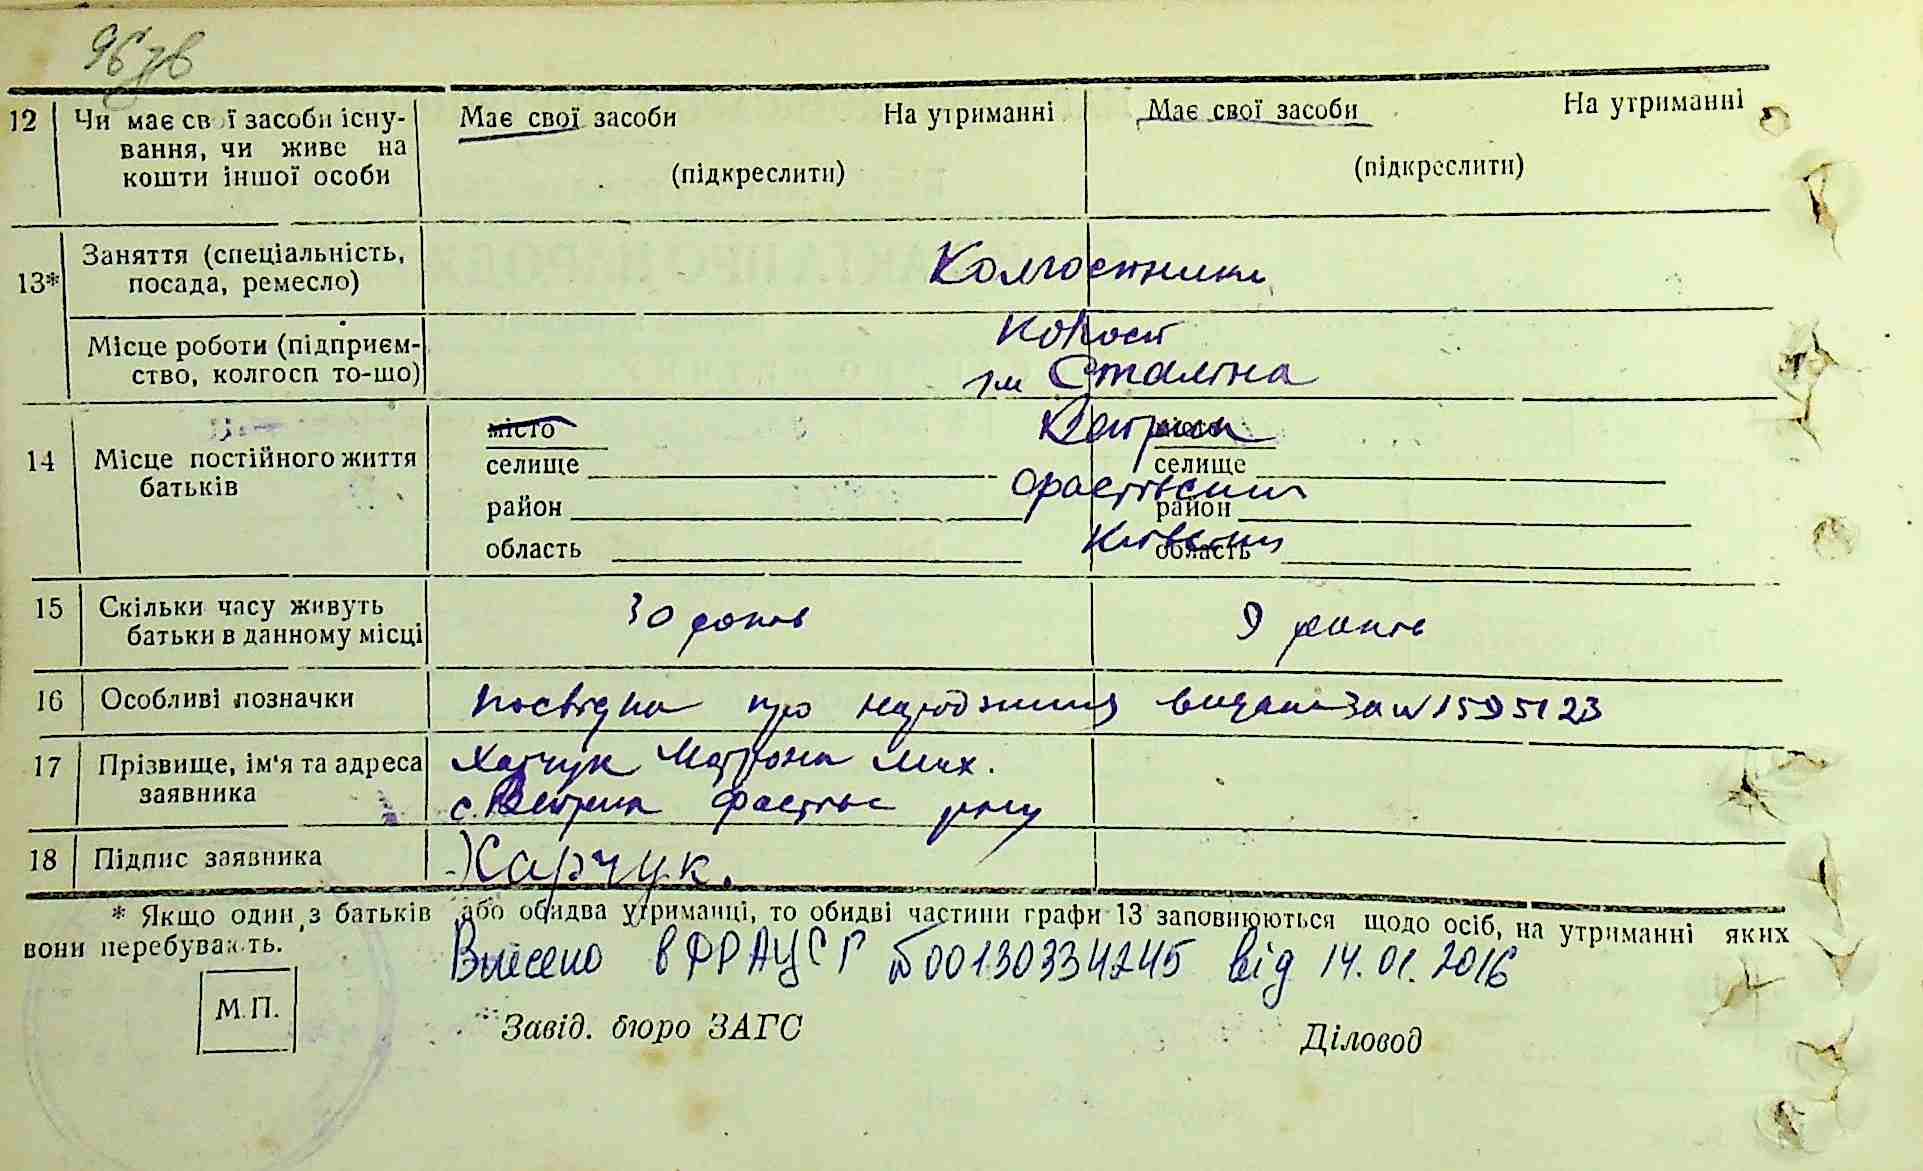 96 зв
12 Чи має свої засоби існу-
вання, чи живе на
кошти іншої особи
Має свої засоби На утриманні
(підкреслити)
Має свої засоби На утриманні
(підкреслити)
13* Заняття (спеціальність,
посада, ремесло)
Колгоспники
Місце роботи (підприєм-
ство, колгосп то-що)
колгосп
ім Сталіна
14 Місце постійного життя
батьків
місто
селище
район
область
селище
Фастівський
район
Київський
область
15 Скільки часу живуть
батьки в данному місці
30 років
9 років
16 Особливі позначки
посвідка про народження видана за № 1595123
17 Прізвище, ім'я та адреса
заявника
Харчук Мотрона Мих.
с. Фастівс р-ну
18 Підпис заявника
Харчук.
* Якщо один з батьків або обидва утриманці, то обидві частини графи 13 заповнюються щодо осіб, на утриманні яких
вони перебувають.
Внесено в ФРАЦСГ №001303334245 від 14.01.2016
М.П.
Завід. бюро ЗАГС
Діловод